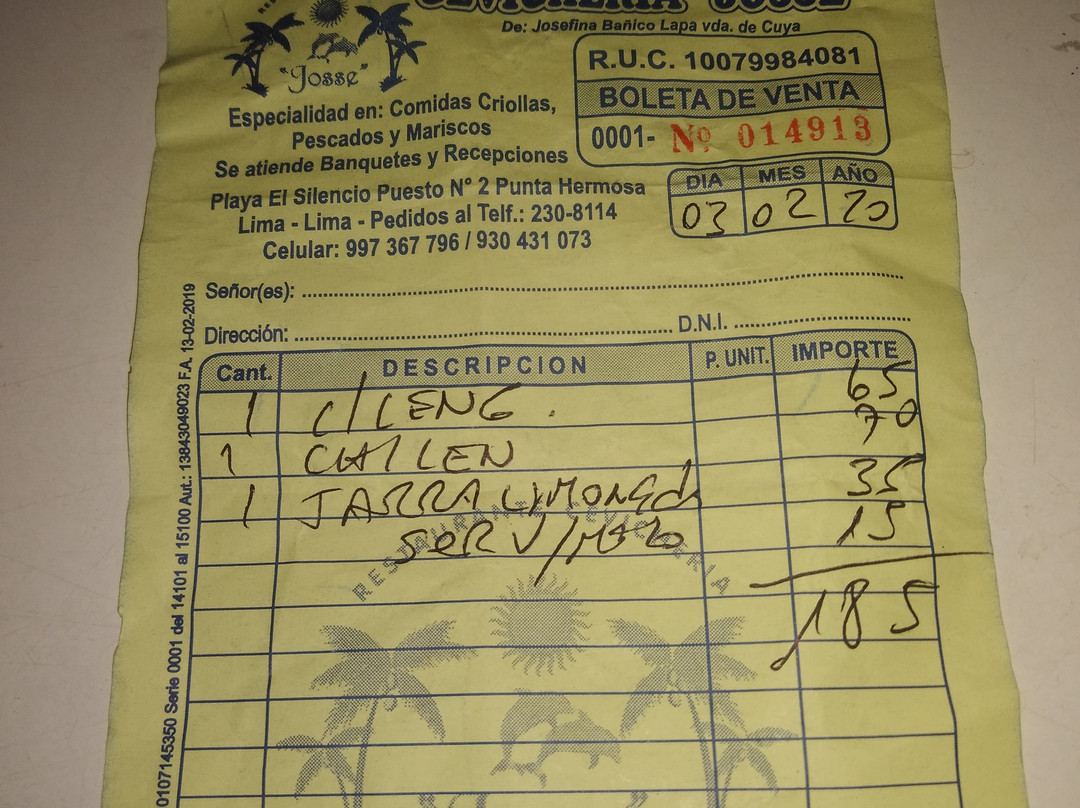 CEVICHERIA "JOSSE"
De: Josefina Bañico Lapa vda. de Cuya
"Josse"
Especialidad en: Comidas Criollas,
Pescados y Mariscos
Se atiende Banquetes y Recepciones
Playa El Silencio Puesto Nº 2 Punta Hermosa
Lima - Lima - Pedidos al Telf.: 230-8114
Celular: 997 367 796 / 930 431 073
R.U.C. 10079984081
BOLETA DE VENTA
0001- Nº 014913
DIA MES AÑO
03 02 20
Señor(es):
Dirección: D.N.I.
Cant. DESCRIPCION P. UNIT. IMPORTE
1 C/LENG. 65
1 CH/LEN 70
1 JARRA LIMONada 35
SERV/MOZO 15
185
RESTAURANTE CEVICHERIA
0107145350 Serie 0001 del 14101 al 15100 Aut.: 13843049023 F.A. 13-02-2019